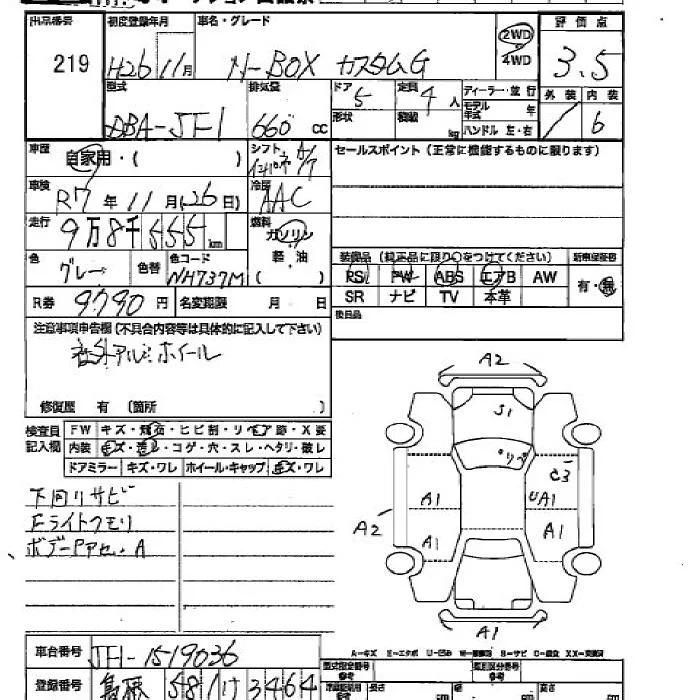 出品番号 219
初度登録年月 H26 11月
車名・グレード N-BOX カスタムG
2WD・4WD
評価点 3.5
型式 DBA-JF1
排気量 660 cc
ドア 5
形状
定員 4 人
積載 kg
ディーラー・並行
モデル年式 年
ハンドル 左・右
外装 内装 6
車歴 自家用・( )
シフト インパネ A/T
セールスポイント (正常に機能するものに限ります)
車検 R7 年 11 月 (26 日)
冷房 AAC
走行 9万8千555 km
燃料 ガソリン 軽・油 ( )
色 グレー 色替 色コード NH737M
装備品 (純正品に限り○をつけてください)
新車保証書 有・無
PS PW ABS エアB AW
SR ナビ TV 本革
R券 9790 円 名変期限 月 日
後日品
注意事項申告欄 (不具合内容等は具体的に記入して下さい)
社外アルミホイール
修復歴 有 (箇所 )
検査員記入欄
FW キズ・飛石・ヒビ割・リペア跡・X要
内装 キズ・汚れ・コゲ・穴・スレ・ヘタリ・破レ
ドアミラー キズ・ワレ ホイール・キャップ キズ・ワレ
下回りサビ
Fライトクモリ
A2
S1
リペ
C3
A1 UA1
A2
A1 A1
A1
車台番号 JF1-1519036
登録番号 581 け 3464
A－キズ E－エクボ U－凹み
型式指定番号 参考
類別区分番号 参考
長さ cm 幅 cm 高さ cm